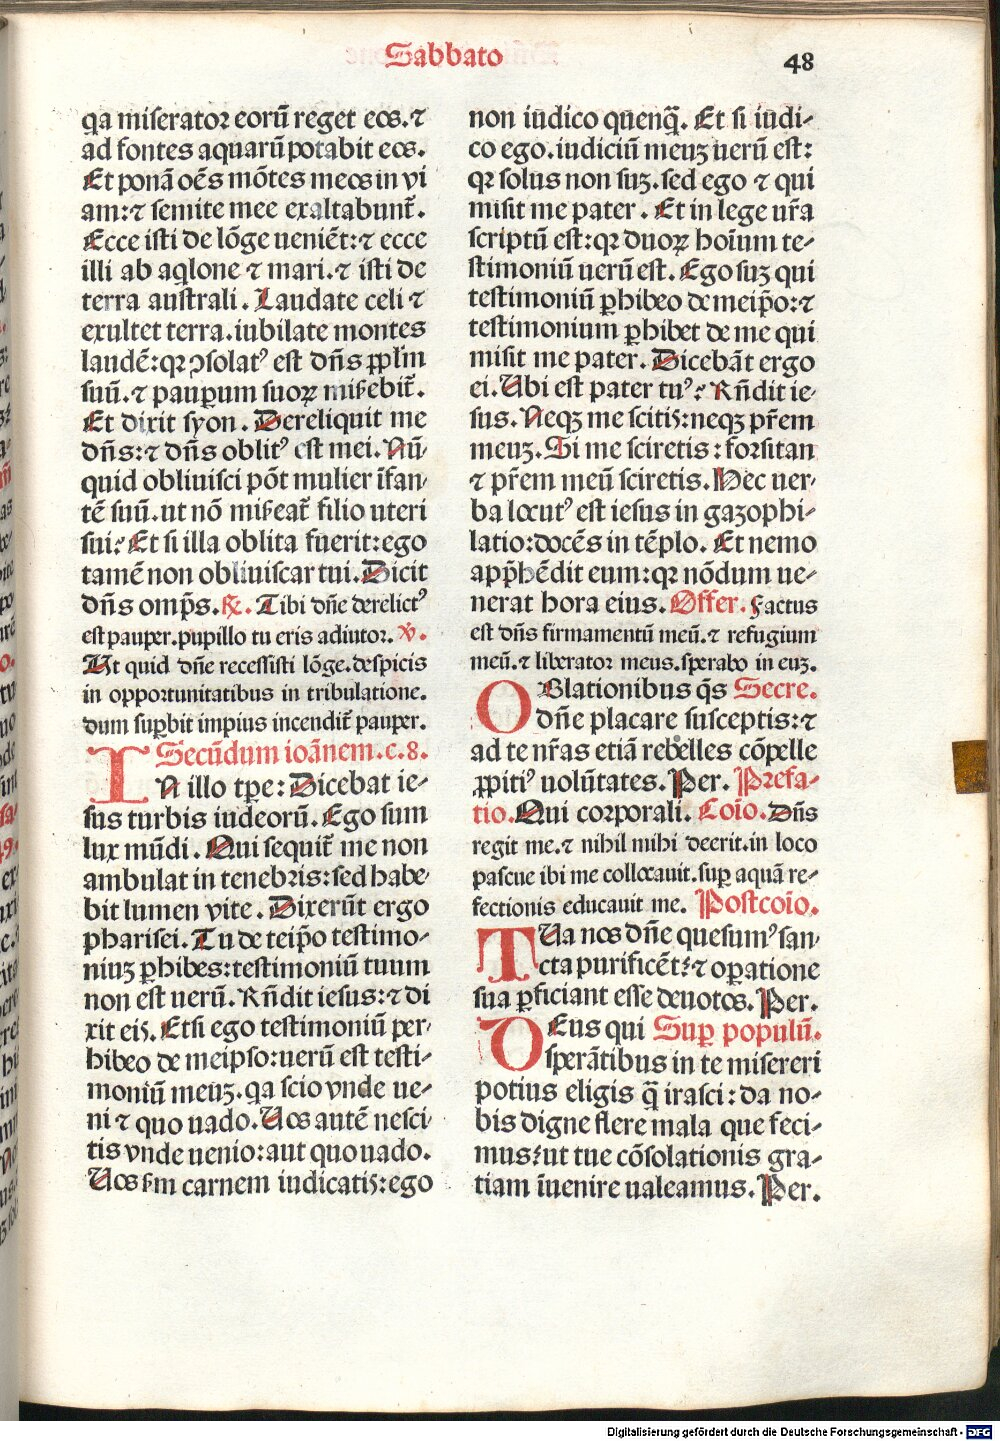 Sabbato
48
qa miserator eorū reget eos.⁊
ad fontes aquarū potabit eos.
Et ponā oēs mōtes meos in vi
am:⁊ semite mee exaltabunt̄.
Ecce isti de lōge ueniēt:⁊ ecce
illi ab aq̇lone ⁊ mari.⁊ isti de
terra australi. Laudate celi ⁊
exultet terra.iubilate montes
laudē:qꝛ ↄsolatꝰ est dn̄s ꝓpl̄m
suū.⁊ pauꝑum suoꝝ miẜebit̄.
Et dixit syon. Dereliquit me
dn̄s:⁊ dn̄s oblitꝰ est mei. Nū-
quid obliuisci pōt mulier īfan-
tē suū.ut nō miẜeat̄ filio uteri
sui? Et si illa oblita fuerit:ego
tamē non obliuiscar tui. Dicit
dn̄s omp̄s. ℟. Tibi dn̄e derelictꝰ
est pauper.pupillo tu eris adiutor. ℣.
Ut quid dn̄e recessisti lōge.despicis
in opportunitatibus in tribulatione.
dum suꝑbit impius incendit̄ pauper.
Secūdum ioānem.c.8.
IN illo tꝑe: Dicebat ie-
sus turbis iudeorū. Ego sum
lux mūdi. Qui sequit̄ me non
ambulat in tenebris:sed habe-
bit lumen vite. Dixerūt ergo
pharisei. Tu de teip̄o testimo-
niuꝫ ꝑhibes:testimoniū tuum
non est uerū. Rn̄dit iesus:⁊ di
xit eis. Etsi ego testimoniū per-
hibeo de meipso:uerū est testi-
moniū meuꝫ. qa scio vnde ue-
ni ⁊ quo uado. Uos autē nesci-
tis vnde uenio:aut quo uado.
Uos ẜm carnem iudicatis:ego
non iudico quenq̄. Et si iudi-
co ego.iudiciū meuꝫ uerū est:
qꝛ solus non suꝫ.sed ego ⁊ qui
misit me pater. Et in lege ur̄a
scriptū est:qꝛ duoꝝ hoīum te-
stimoniū uerū est. Ego suꝫ qui
testimoniū ꝑhibeo de meip̄o:⁊
testimonium ꝑhibet de me qui
misit me pater. Dicebāt ergo
ei. Ubi est pater tuꝰ? Rn̄dit ie-
sus. Neqꝫ me scitis:neqꝫ pr̄em
meuꝫ. Si me sciretis:forsitan
⁊ pr̄em meū sciretis. Hec uer-
ba locutꝰ est iesus in gazophi-
latio:docēs in tēplo. Et nemo
app̄hēdit eum:qꝛ nōdum ue-
nerat hora eius. Offer. Factus
est dn̄s firmamentū meū.⁊ refugium
meū.⁊ liberator meus.sperabo in euꝫ.
OBlationibus q̄s Secre.
dn̄e placare susceptis:⁊
ad te nr̄as etiā rebelles cōpelle
ꝓpitiꝰ uolūtates. Per. Prefa-
tio. Qui corporali. Coīo. Dn̄s
regit me.⁊ nihil mihi deerit.in loco
pascue ibi me collocauit.suꝑ aquā re-
fectionis educauit me. Postcoīo.
TUa nos dn̄e quesumꝰ san-
cta purificēt:⁊ oꝑatione
sua ꝑficiant esse deuotos. Per.
DEus qui Suꝑ populū.
sperātibus in te misereri
potius eligis q̄ irasci:da no-
bis digne flere mala que feci-
mus:ut tue cōsolationis gra-
tiam īuenire ualeamus. Per.
Digitalisierung gefördert durch die Deutsche Forschungsgemeinschaft - DFG